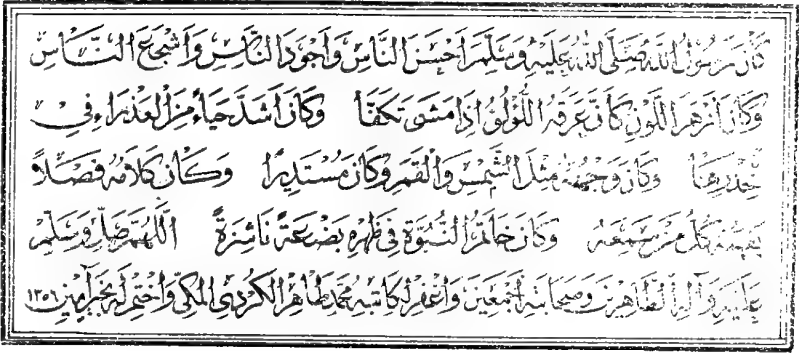 كَانَ رَسُولُ اللَّهِ صَلَّى اللَّهُ عَلَيْهِ وَسَلَّمَ أَحْسَنَ النَّاسِ وَأَجْوَدَ النَّاسِ وَأَشْجَعَ النَّاسِ
وَكَانَ أَزْهَرَ اللَّوْنِ كَأَنَّ عَرَقَهُ اللُّؤْلُؤُ إِذَا مَشَى تَكَفَّأَ وَكَانَ أَشَدَّ حَيَاءً مِنَ الْعَذْرَاءِ فِي
خِدْرِهَا وَكَانَ وَجْهُهُ مِثْلَ الشَّمْسِ وَالْقَمَرِ وَكَانَ مُسْتَدِيرًا وَكَانَ كَلَامُهُ فَصْلًا
يَفْهَمُهُ كُلُّ مَنْ سَمِعَهُ وَكَانَ خَاتَمُ النُّبُوَّةِ فِي ظَهْرِهِ بَضْعَةً نَاشِزَةً اللَّهُمَّ صَلِّ وَسَلِّمْ
عَلَيْهِ وَآلِهِ الطَّاهِرِينَ وَصَحَابَتِهِ أَجْمَعِينَ وَاغْفِرْ لِكَاتِبِهِ مُحَمَّد طَاهِر الْكُرْدِي الْمَكِّي وَاخْتِمْ لَهُ بِخَيْرٍ آمِين ١٣٥٦